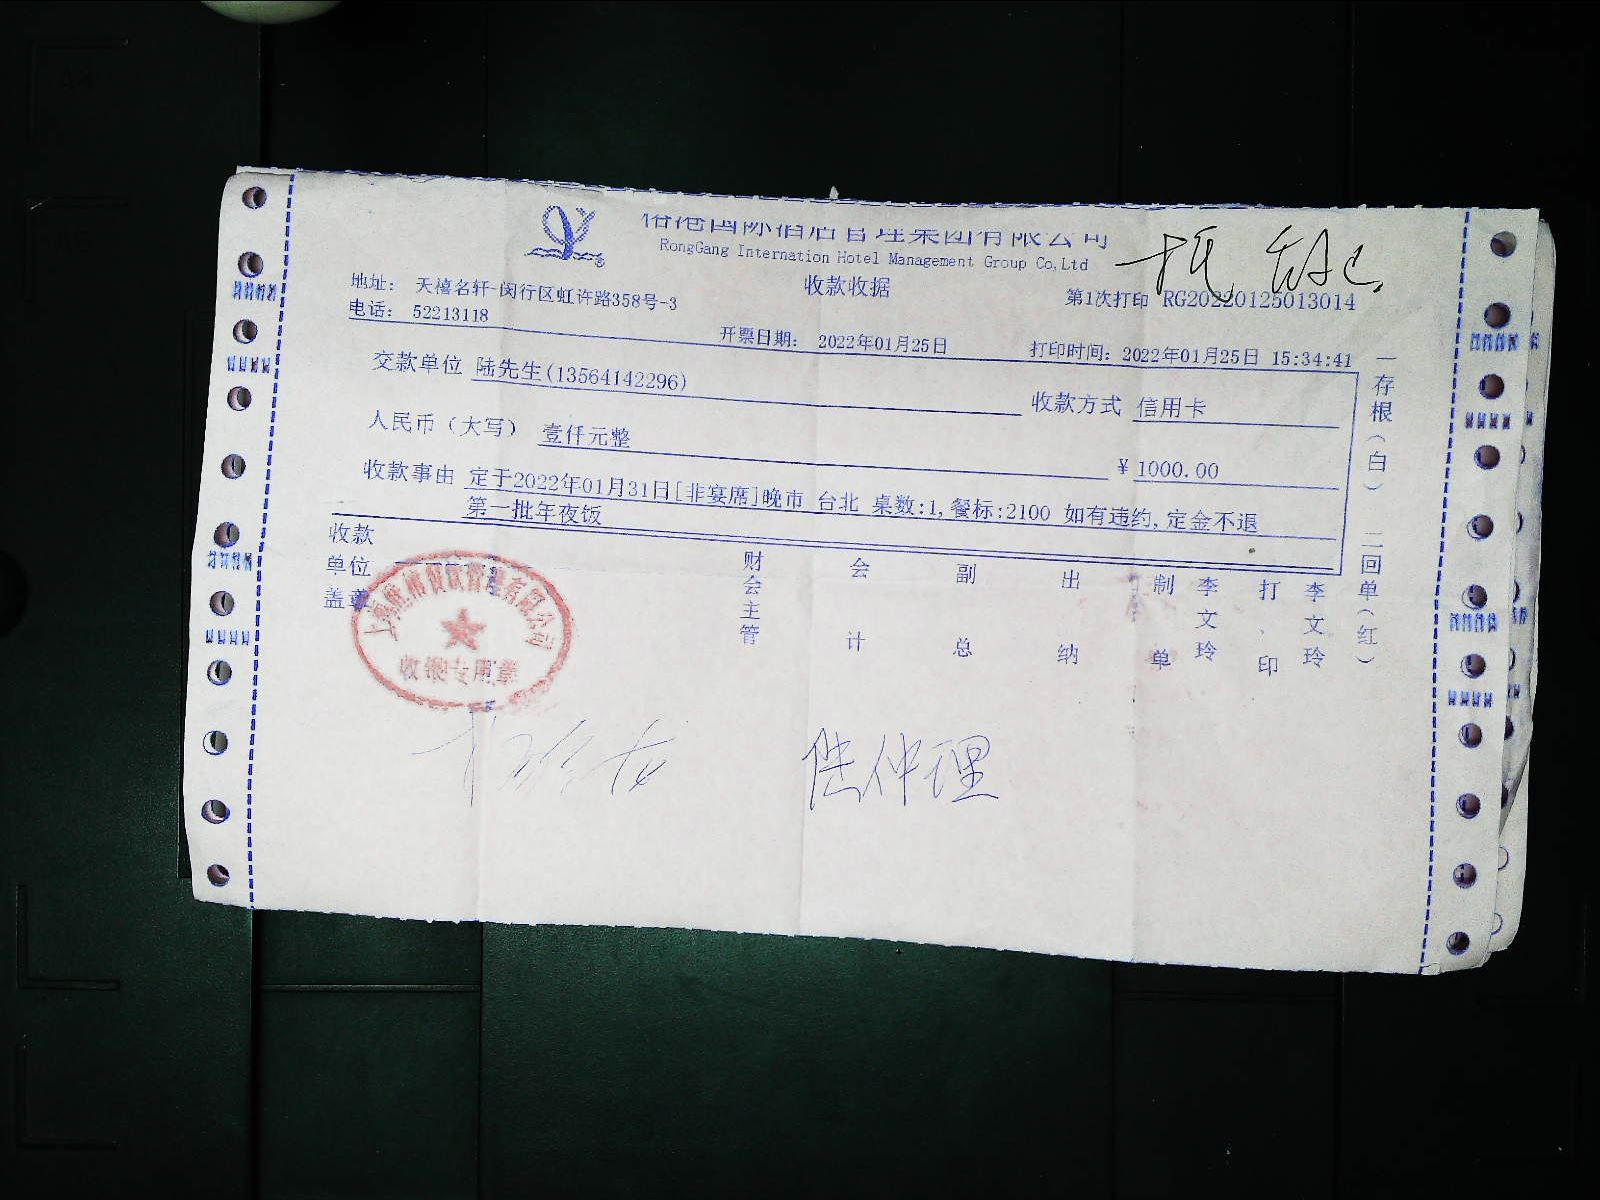 国际酒店管理集团有限公司
RongGang International Hotel Management Group Co,Ltd
收款收据
地址： 天禧名轩-闵行区虹许路358号-3
第1次打印 RG20220125013014
电话： 52213118
开票日期： 2022年01月25日
打印时间：2022年01月25日 15:34:41
交款单位 陆先生(13564142296)
收款方式 信用卡
人民币（大写） 壹仟元整
¥ 1000.00
收款事由 定于2022年01月31日[非宴席]晚市 台北 桌数:1,餐标:2100 如有违约,定金不退
第一批年夜饭
一存根（白） 二回单（红）
收款单位盖章
财会主管
会计
副总
出纳
制单
李文玲
打、印
李文玲
收银专用章
陆仲理